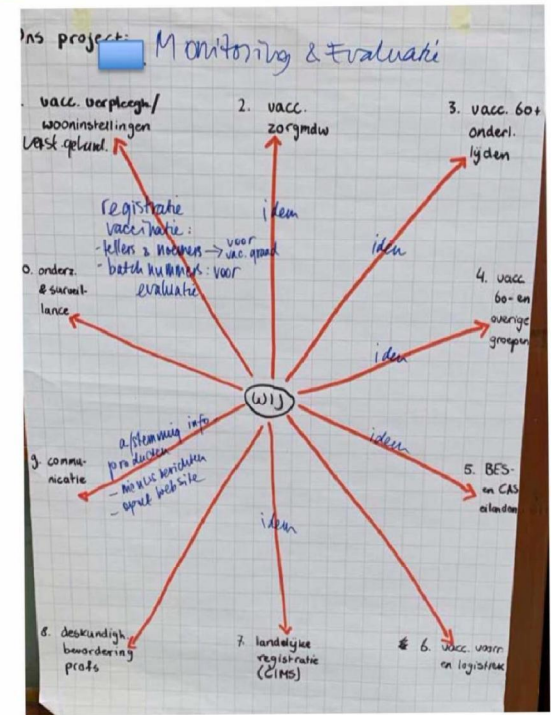 ns project:
Monitoring & Evaluatie
vacc. verpleegh/
wooninstellingen
verst. gehand.
2. vacc.
zorgmdw
3. vacc. 60+
onderl.
lijden
registratie
vaccinatie:
- tellers & noemers → voor
vac. graad
- batch nummers: voor
evaluatie
idem
idem
0. onderz.
& surveil-
lance
4. vacc
60- en
overige
groepen
idem
WIJ
afstemming info
producten
- nieuwsberichten
- opzet website
idem
9. commu-
nicatie
5. BES-
en CAS
eilanden
idem
8. deskundigh.
bevordering
profs
7. landelijke
registratie
(CIMS)
6. vacc. voorr
en logistiek